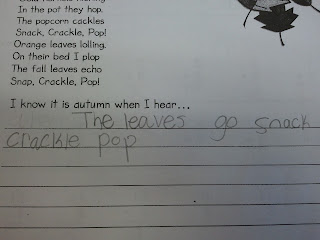 In the pot they hop.
The popcorn cackles
Snack, Crackle, Pop!
Orange leaves lolling.
On their bed I plop
The fall leaves echo
Snap, Crackle, Pop!
I know it is autumn when I hear...
The leaves go snack
crackle pop